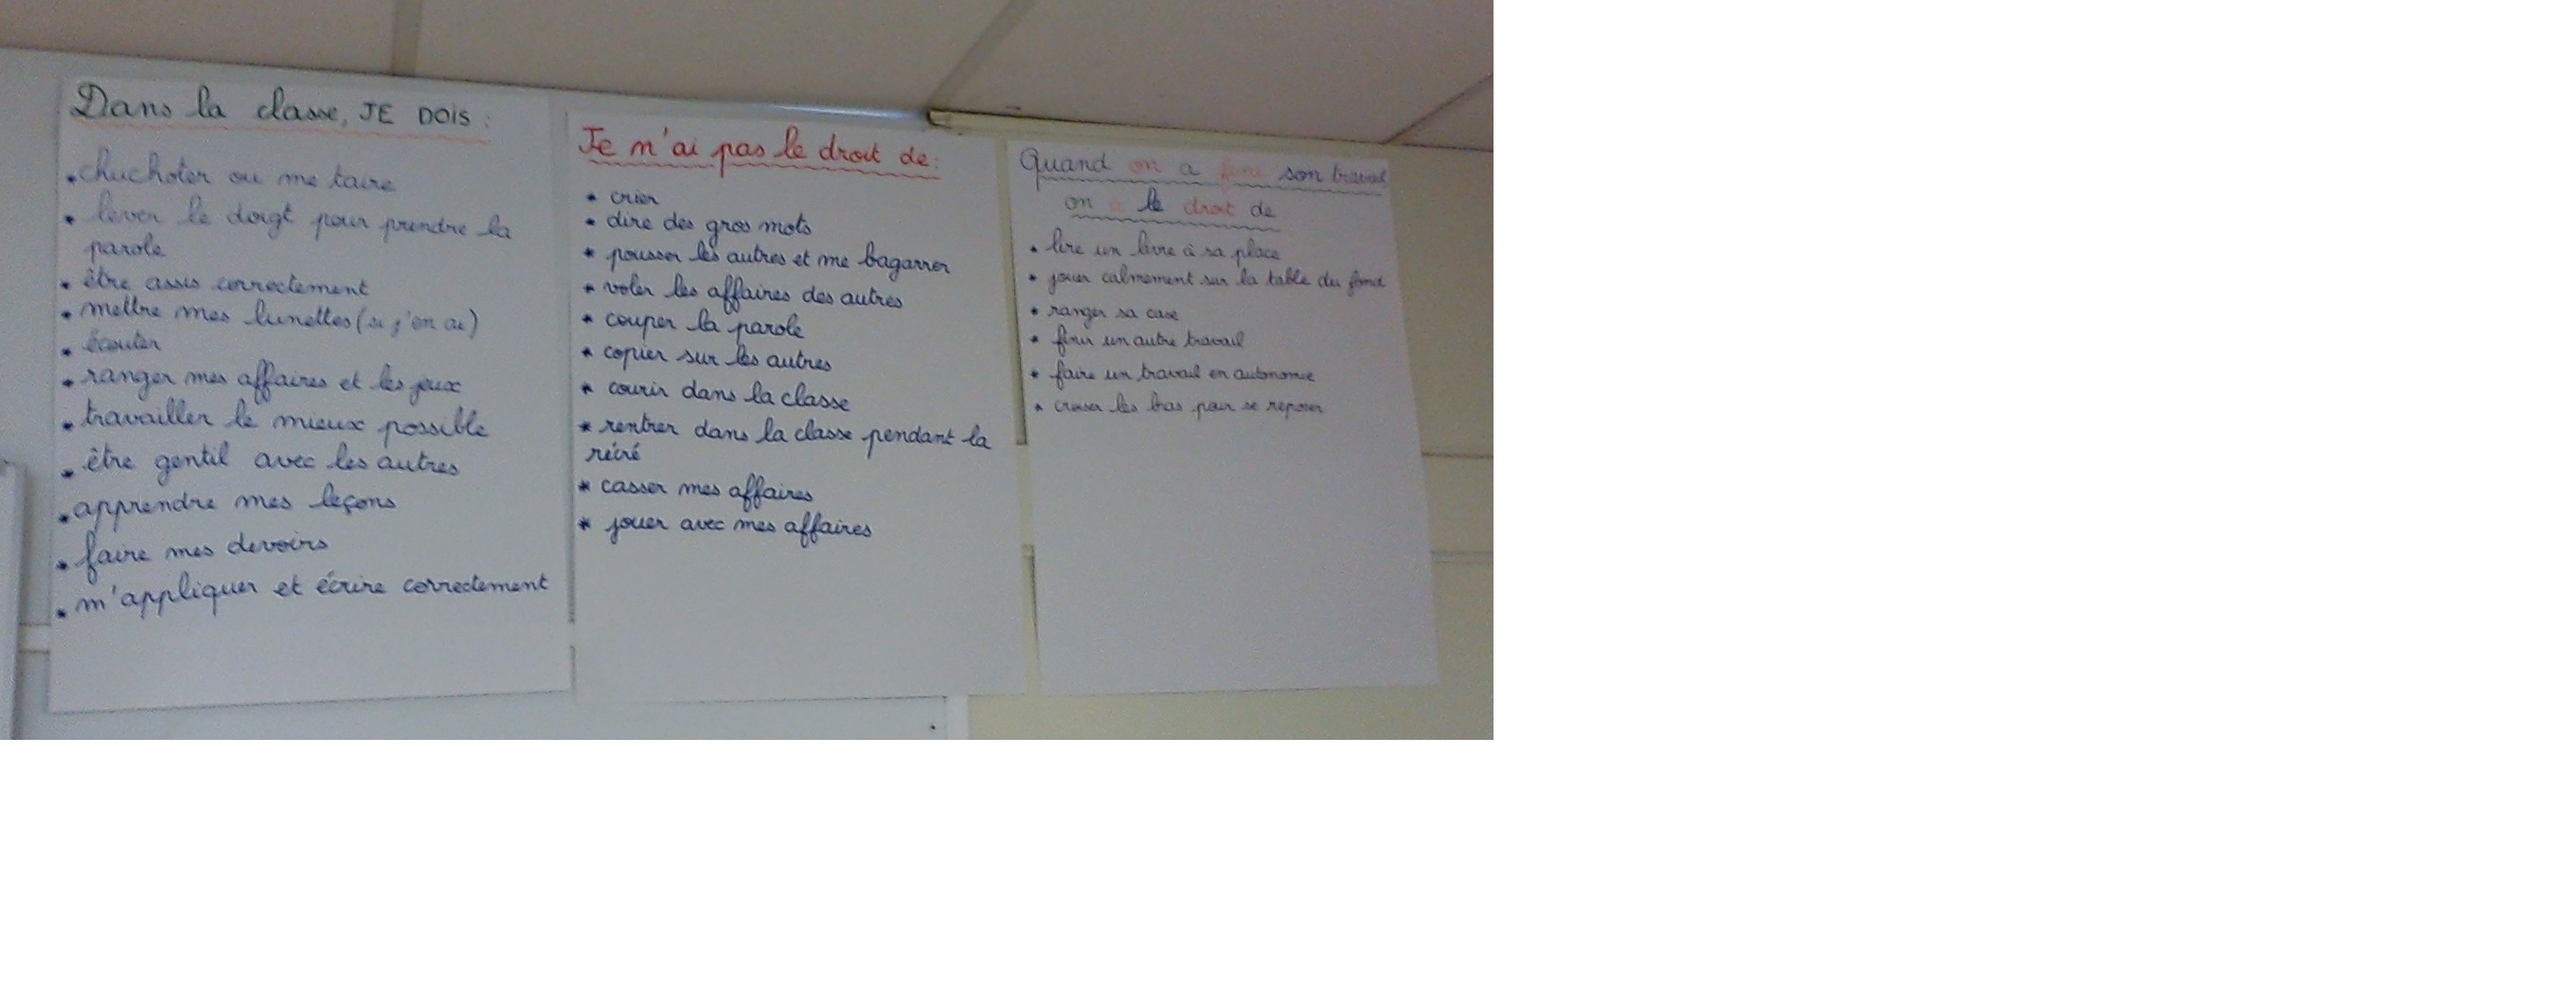 Dans la classe, JE DOIS :
• chuchoter ou me taire
• lever le doigt pour prendre la
parole
• être assis correctement
• mettre mes lunettes (si j'en ai)
• écouter
• ranger mes affaires et les jeux
• travailler le mieux possible
• être gentil avec les autres
• apprendre mes leçons
• faire mes devoirs
• m'appliquer et écrire correctement
Je n'ai pas le droit de :
* crier
* dire des gros mots
* pousser les autres et me bagarrer
* voler les affaires des autres
* couper la parole
* copier sur les autres
* courir dans la classe
* rentrer dans la classe pendant la
récré
* casser mes affaires
* jouer avec mes affaires
Quand on a fini son travail
on a le droit de
* lire un livre à sa place
* jouer calmement sur la table du fond
* ranger sa case
* finir un autre travail
* faire un travail en autonomie
* croiser les bras pour se reposer